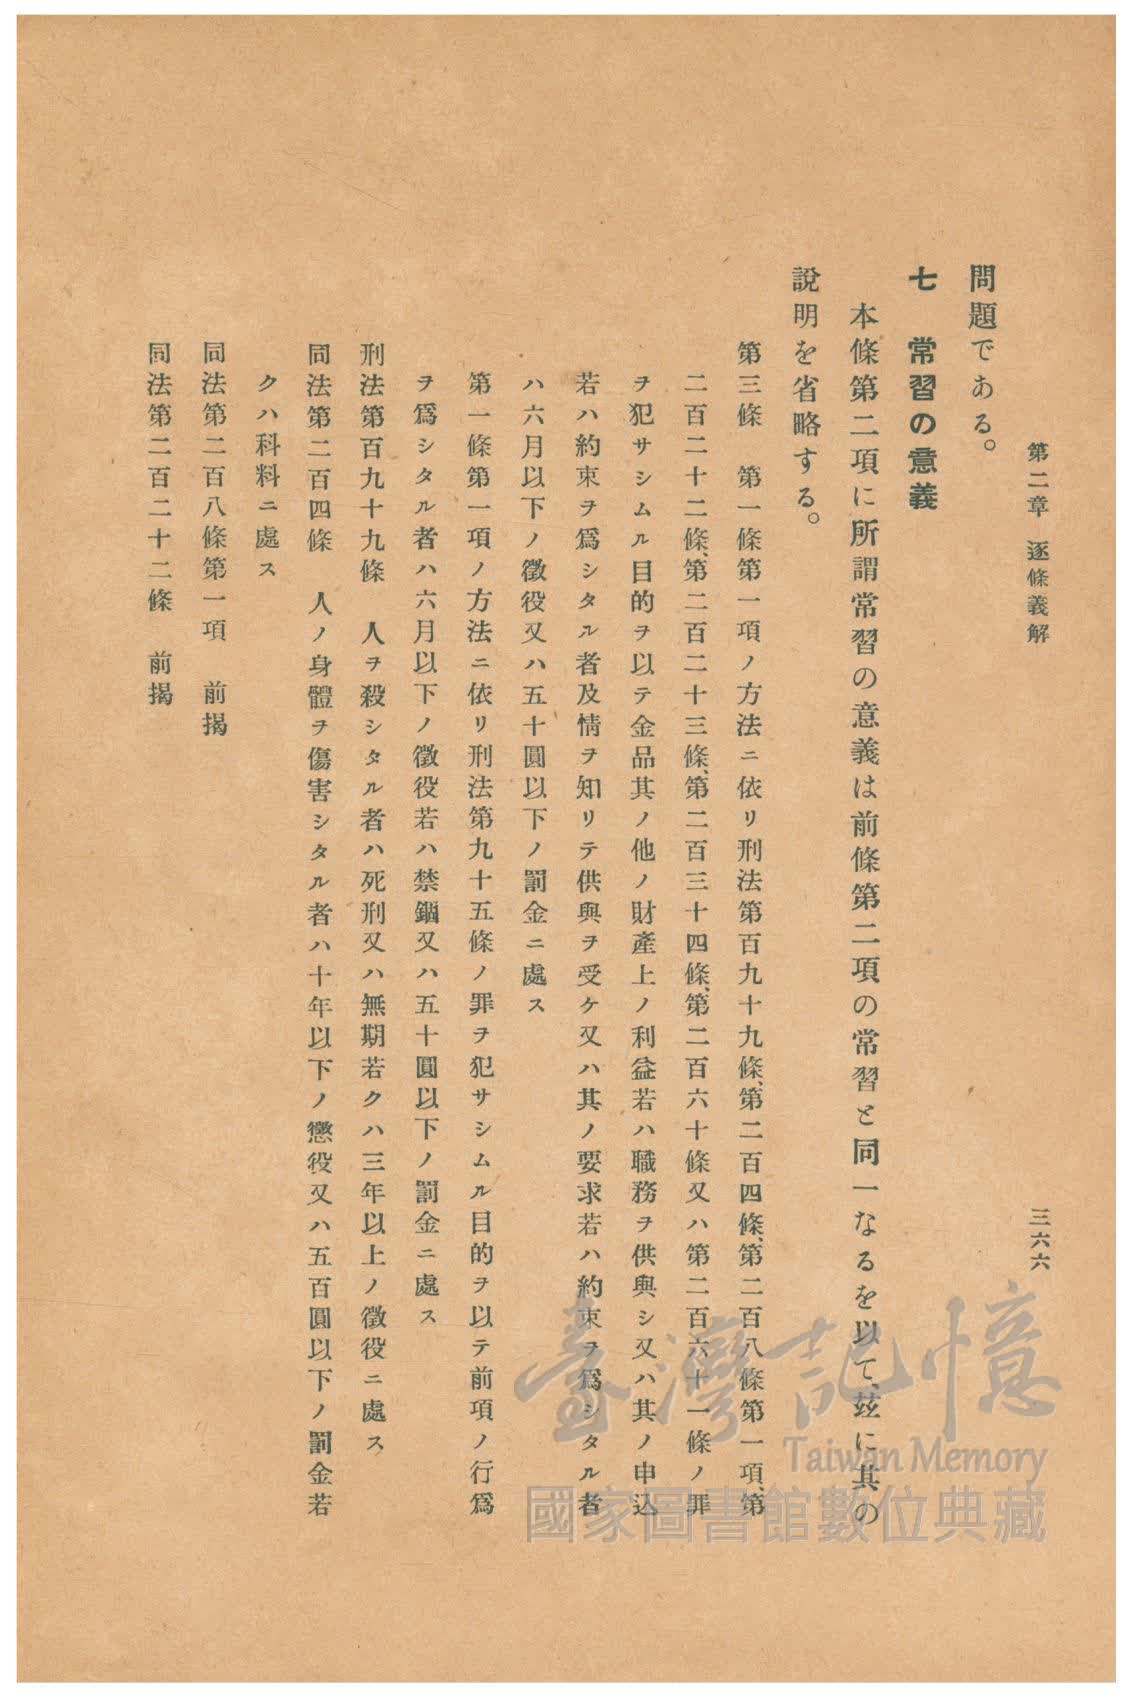 第二章 逐條義解
三六六
問題である。
七 常習の意義
本條第二項に所謂常習の意義は前條第二項の常習と同一なるを以て、玆に其の
說明を省略する。
第三條 第一條第一項ノ方法ニ依リ刑法第百九十九條、第二百四條、第二百八條第一項、第
二百二十二條、第二百二十三條、第二百三十四條、第二百六十條又ハ第二百六十一條ノ罪
ヲ犯サシムル目的ヲ以テ金品其ノ他ノ財產上ノ利益若ハ職務ヲ供與シ又ハ其ノ申込
若ハ約束ヲ爲シタル者及情ヲ知リテ供與ヲ受ケ又ハ其ノ要求若ハ約束ヲ爲シタル者
ハ六月以下ノ懲役又ハ五十圓以下ノ罰金ニ處ス
第一條第一項ノ方法ニ依リ刑法第九十五條ノ罪ヲ犯サシムル目的ヲ以テ前項ノ行爲
ヲ爲シタル者ハ六月以下ノ懲役若ハ禁錮又ハ五十圓以下ノ罰金ニ處ス
刑法第百九十九條 人ヲ殺シタル者ハ死刑又ハ無期若クハ三年以上ノ懲役ニ處ス
同法第二百四條 人ノ身體ヲ傷害シタル者ハ十年以下ノ懲役又ハ五百圓以下ノ罰金若
クハ科料ニ處ス
同法第二百八條第一項 前揭
同法第二百二十二條 前揭
臺灣記憶
Taiwan Memory
國家圖書館數位典藏